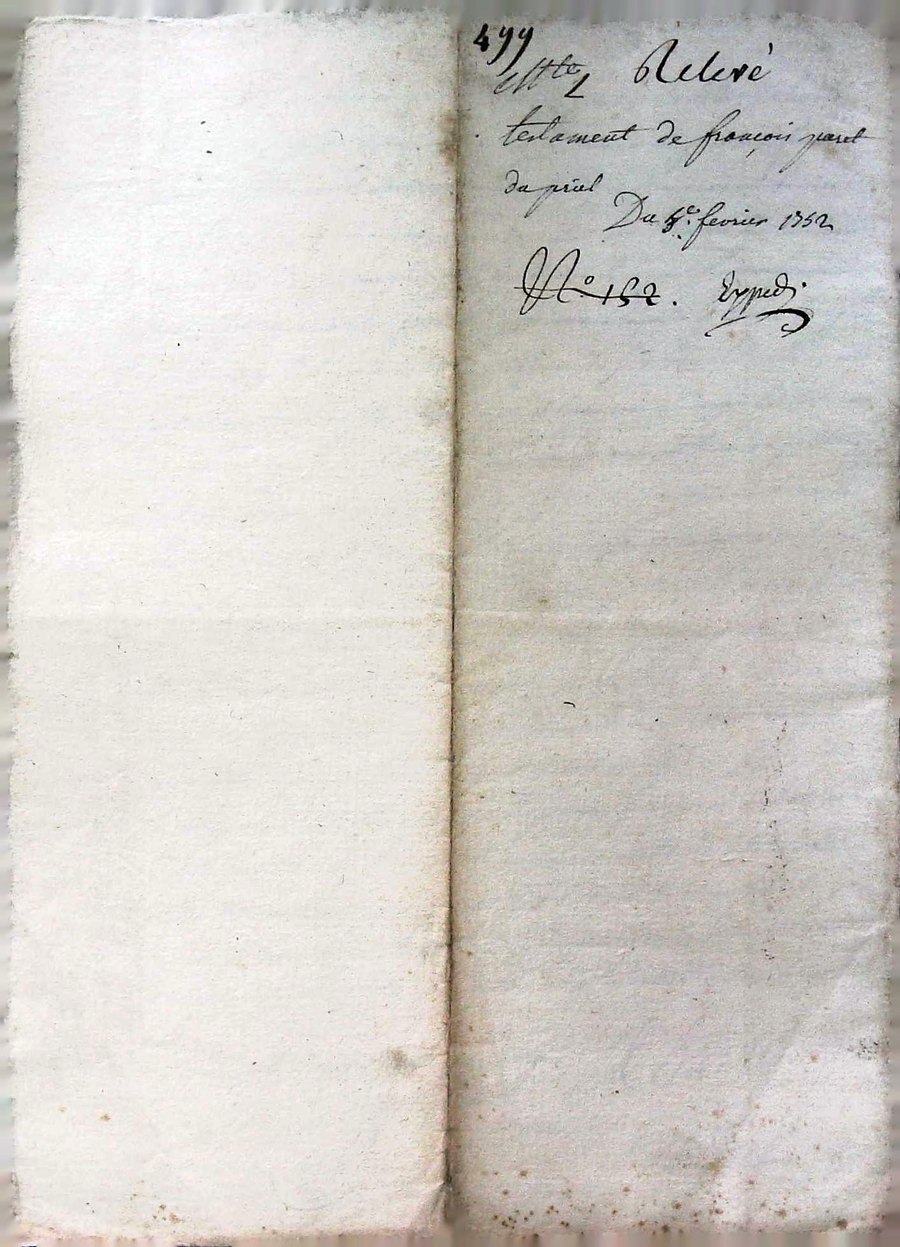 499
Relevé
testament de françois paret
du priel
Du 8e. fevrier 1752
N° 152. Expedi.